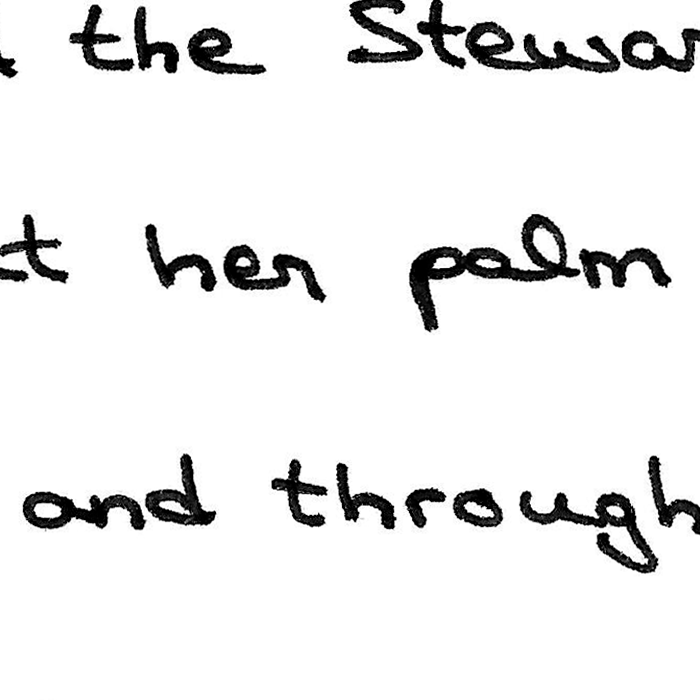 the Stewar
t her palm
and through